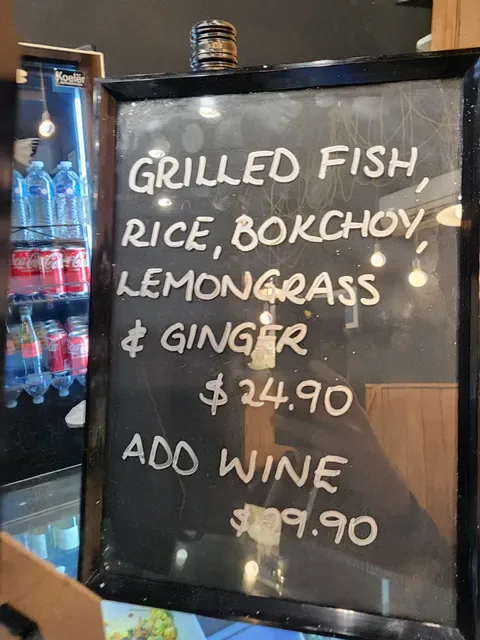 Koeler
GRILLED FISH,
RICE, BOKCHOY,
LEMONGRASS
& GINGER
$24.90
ADD WINE